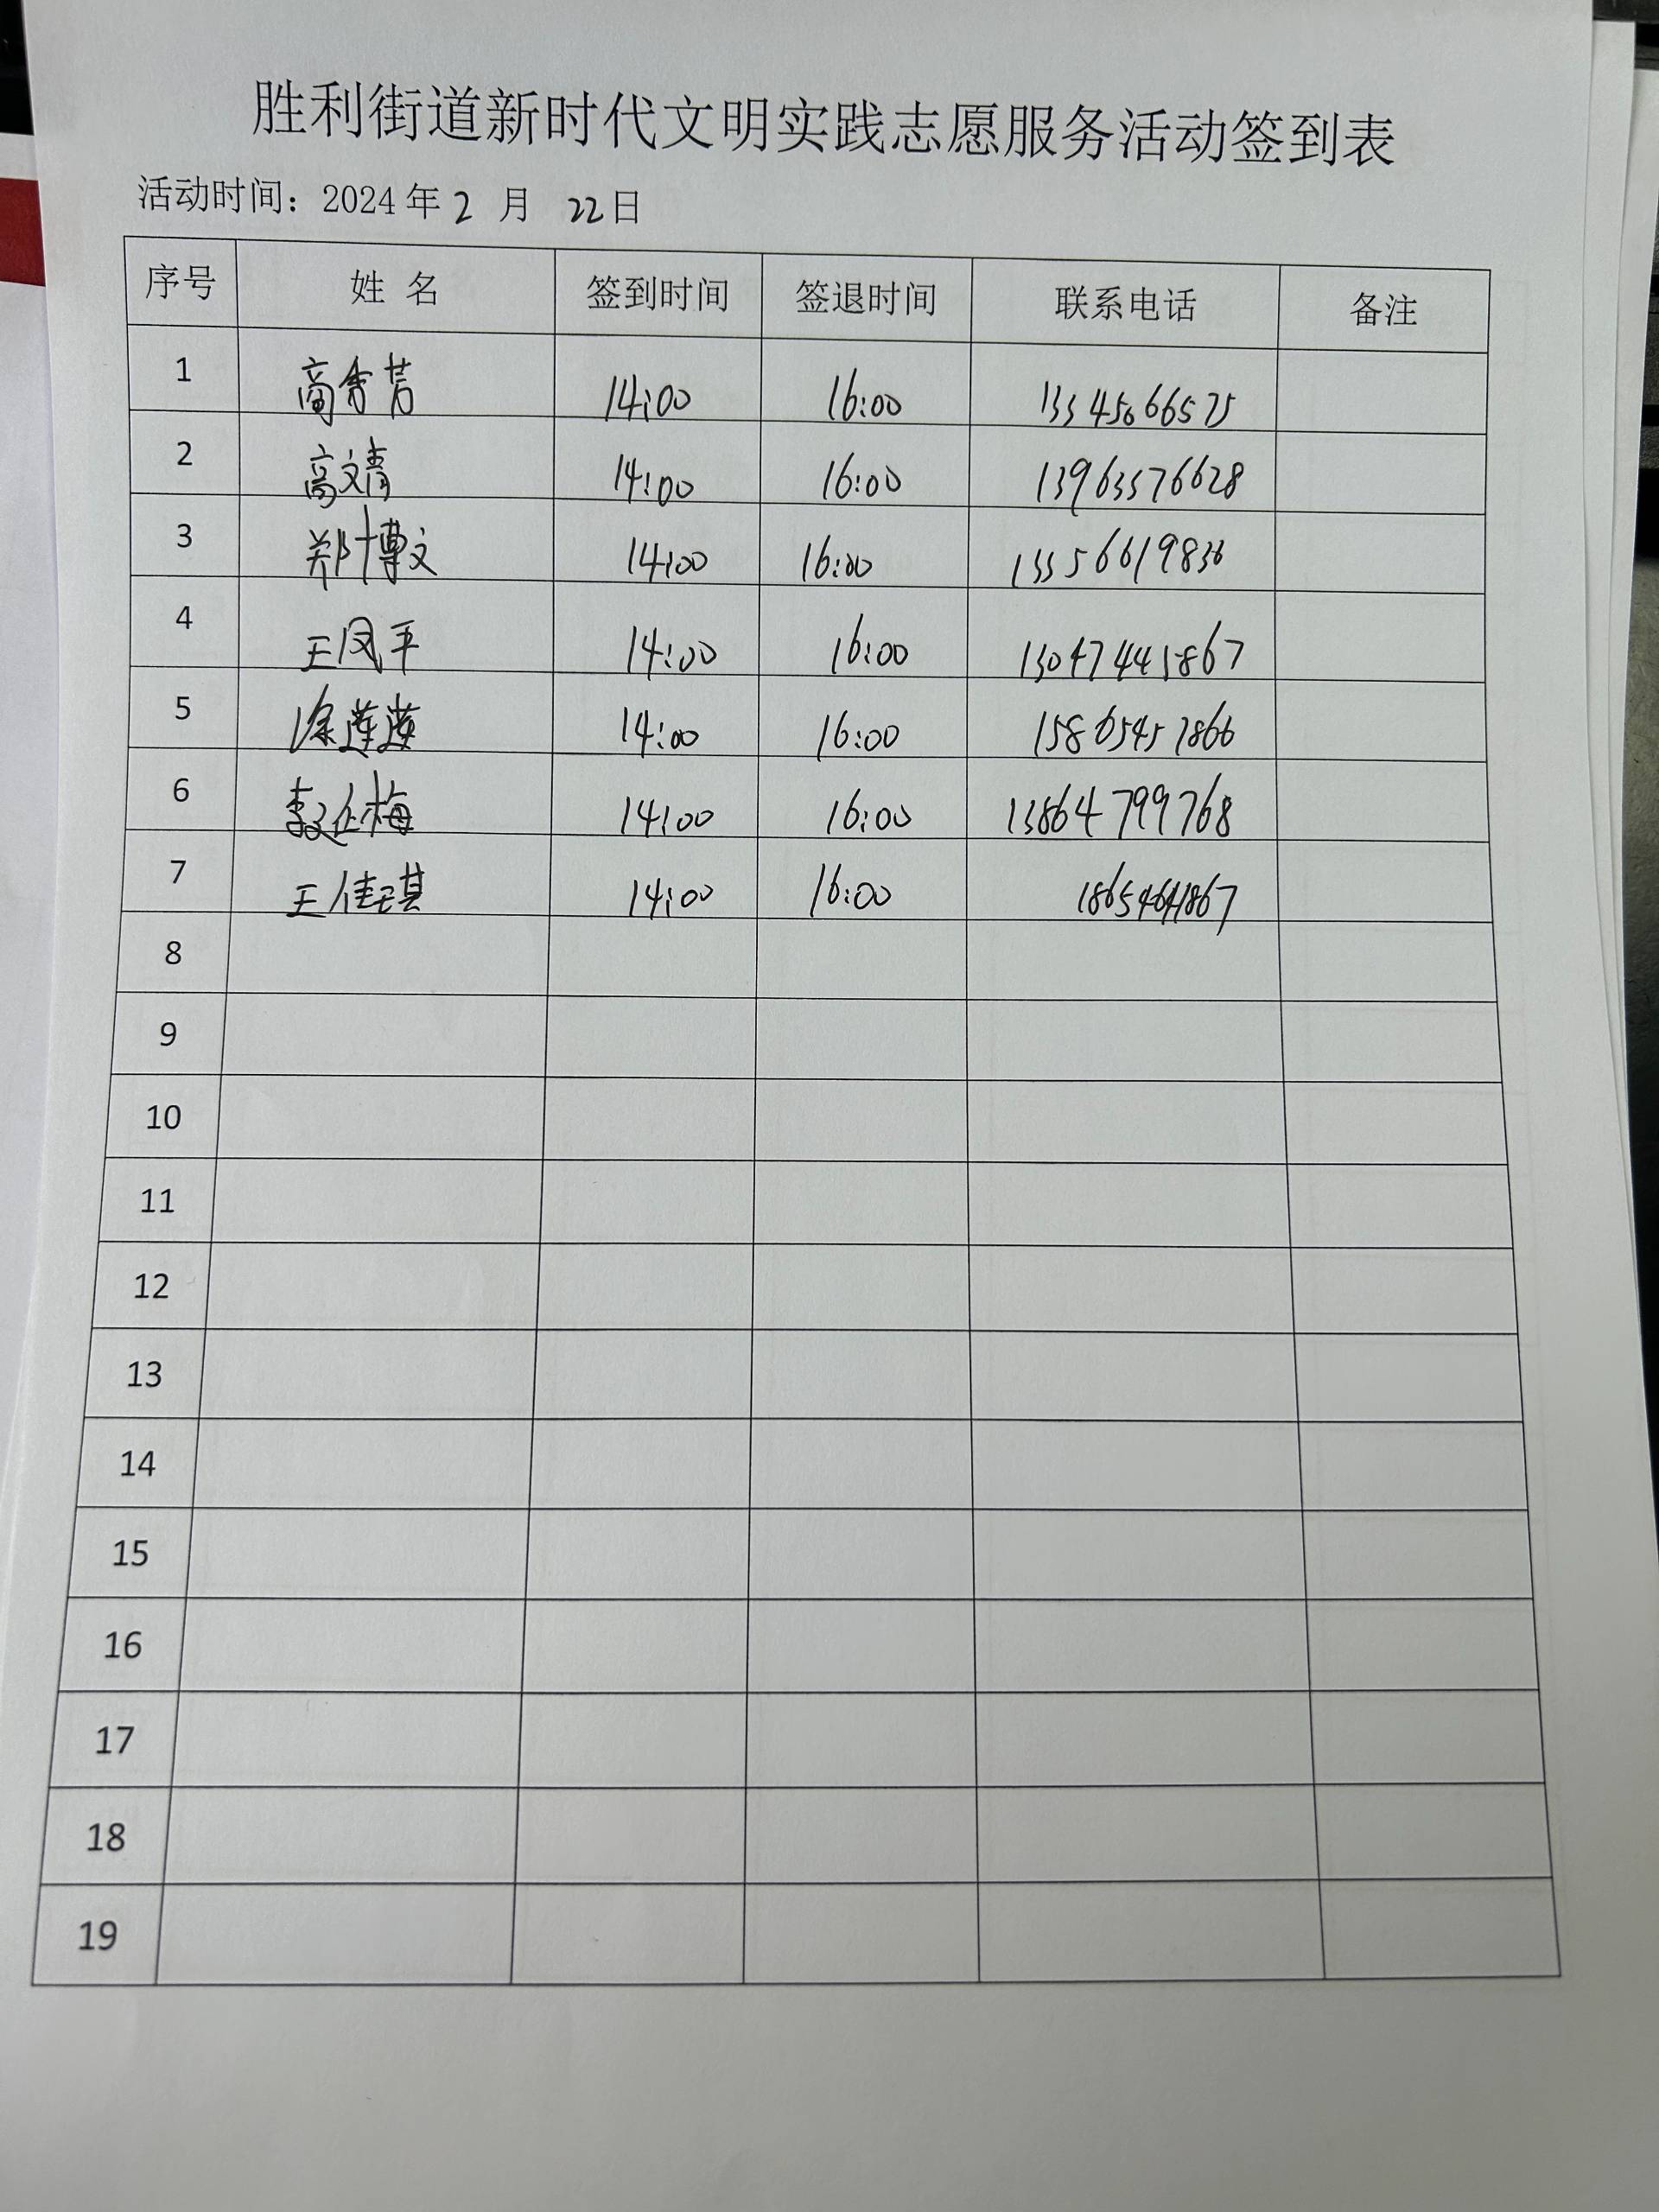 胜利街道新时代文明实践志愿服务活动签到表
活动时间：2024年2月22日
序号 姓名 签到时间 签退时间 联系电话 备注
1 高秀芳 14:00 16:00 13345066575
2 高文清 14:00 16:00 13963576628
3 郑博文 14:00 16:00 13356619836
4 王凤平 14:00 16:00 13047445867
5 徐莲莲 14:00 16:00 15865457866
6 李延梅 14:00 16:00 13864799768
7 王佳琪 14:00 16:00
8
9
10
11
12
13
14
15
16
17
18
19